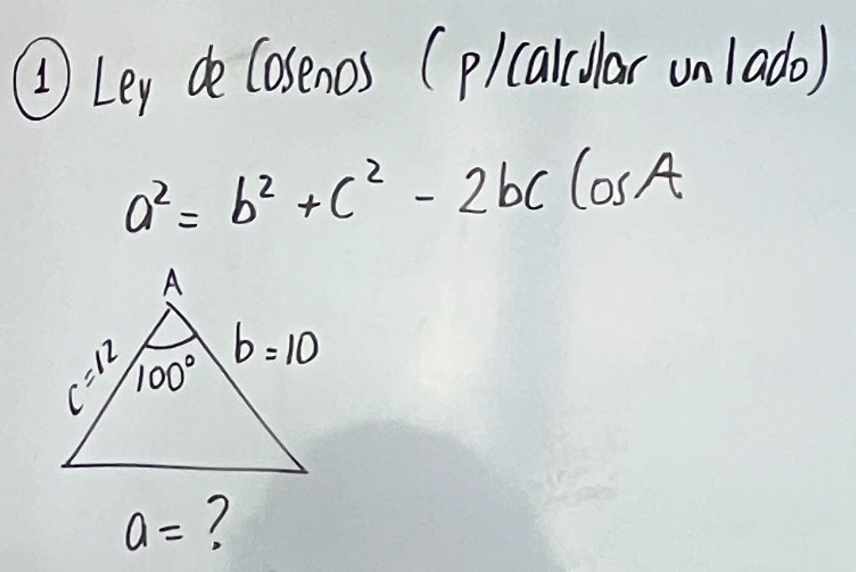 1 Ley de Cosenos (p/calcular un lado)
a² = b² + c² - 2bc Cos A
A
c=12 100° b=10
a = ?